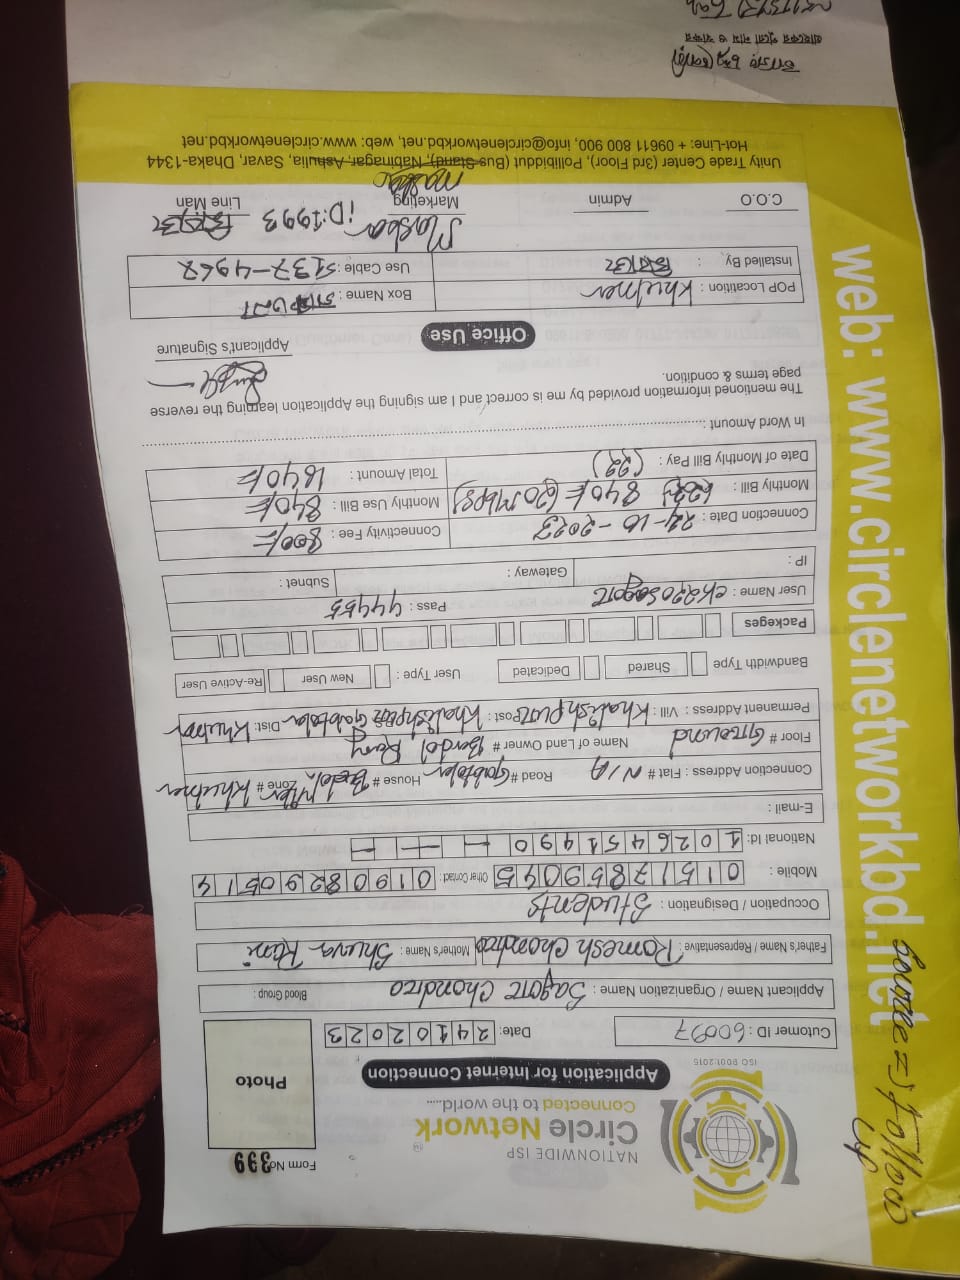 Form No 399
NATIONWIDE ISP
Circle Network
Connected to the world......
ISO 9001:2015
Application for Internet Connection
Photo
Cutomer ID : 60097 Date: 24102023
Applicant Name / Organization Name : Sagore Chondro Blood Group :
Father's Name / Representative : Romesh Chondro Mother's Name : Shuva Rani
Occupation / Designation : Students
Mobile : 01517859045 Other Contact : 01908290514
National Id: 1026451490
E-mail :
Connection Address : Flat # N/A Road # Gabtola House # Zone # Khulner
Floor # Ground Name of Land Owner # Badol Roy
Permanent Address : Vill : Khalishpure Post : Khalishpure Gabtola Dist: Khulner
Bandwidth Type Shared Dedicated User Type : New User Re-Active User
Packeges
User Name : Pass : 44455
IP : Gateway : Subnet :
Connection Date : 24-10-2023 Connectivity Fee : 800/=
Monthly Bill : 840/= (20 Mbps) Monthly Use Bill : 840/=
Date of Monthly Bill Pay : (22) Total Amount : 1640/=
In Word Amount :
The mentioned information provided by me is correct and I am signing the Application learning the reverse
page terms & condition.
Applicant's Signature
Office Use
POP Locatition : Khulner Box Name :
Installed By : Use Cable : 5137-4962
iD:1993
C.O.O Admin Marketing Line Man
Unity Trade Center (3rd Floor), Pollibidiput (Bus Stand), Nabinagar, Ashulia, Savar, Dhaka-1344
Hot-Line: + 09611 800 900, info@circlenetworkbd.net, web: www.circlenetworkbd.net
web: www.circlenetworkbd.net
Sourse => Follow
up
গ্রাহকের পুরো নাম ও স্বাক্ষর